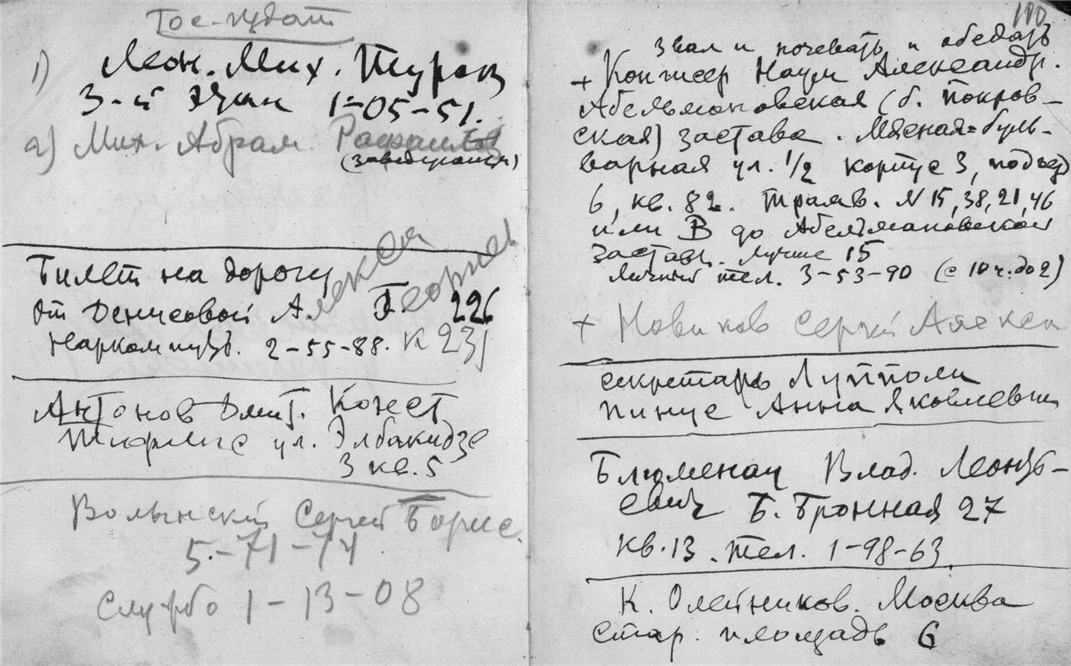 Гос-издат
1) Леон. Мих. Туров
3-й Этаж 1-05-51.
2) Мих. Абрам. Рафаил
(заведующий)
Билет на дорогу
от Денисовой А. Алексей Георгиев
226
Наркомпузд. 2-55-88. к 231
Антонов Дмит. Конст
Тифлис ул. Элбакидзе
3 кв. 5
Волынский Сергей Борис.
5-71-74
Служба 1-13-08
100
Звал и ночевать и обедать
+ Контсер Наум Александр.
Абельмановская (б. покров-
ская) застава. Мясная-буль-
варная ул. 1/2 корпус 3, подъезд
6, кв. 82. трамв. N 15, 38, 21, 46
или В до Абельмановской
застав. лучше 15
личный тел. 3-53-90 (с 10 ч. до 2)
+ Новиков Сергей Алексе
секретарь Лупполи
Пинус Анна Яковлевна
Блюменау Влад. Леонть-
евич Б. Бронная 27
кв. 13. тел. 1-98-63
К. Олейников. Москва
стар. площадь 6